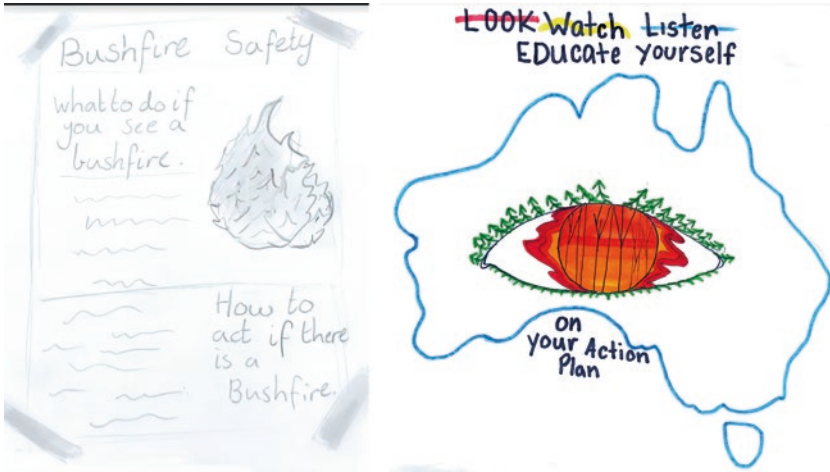 Bushfire Safety
what to do if
you see a
bushfire.
How to
act if there
is a
Bushfire.
LOOK Watch Listen
EDucate yourself
on
your Action
Plan